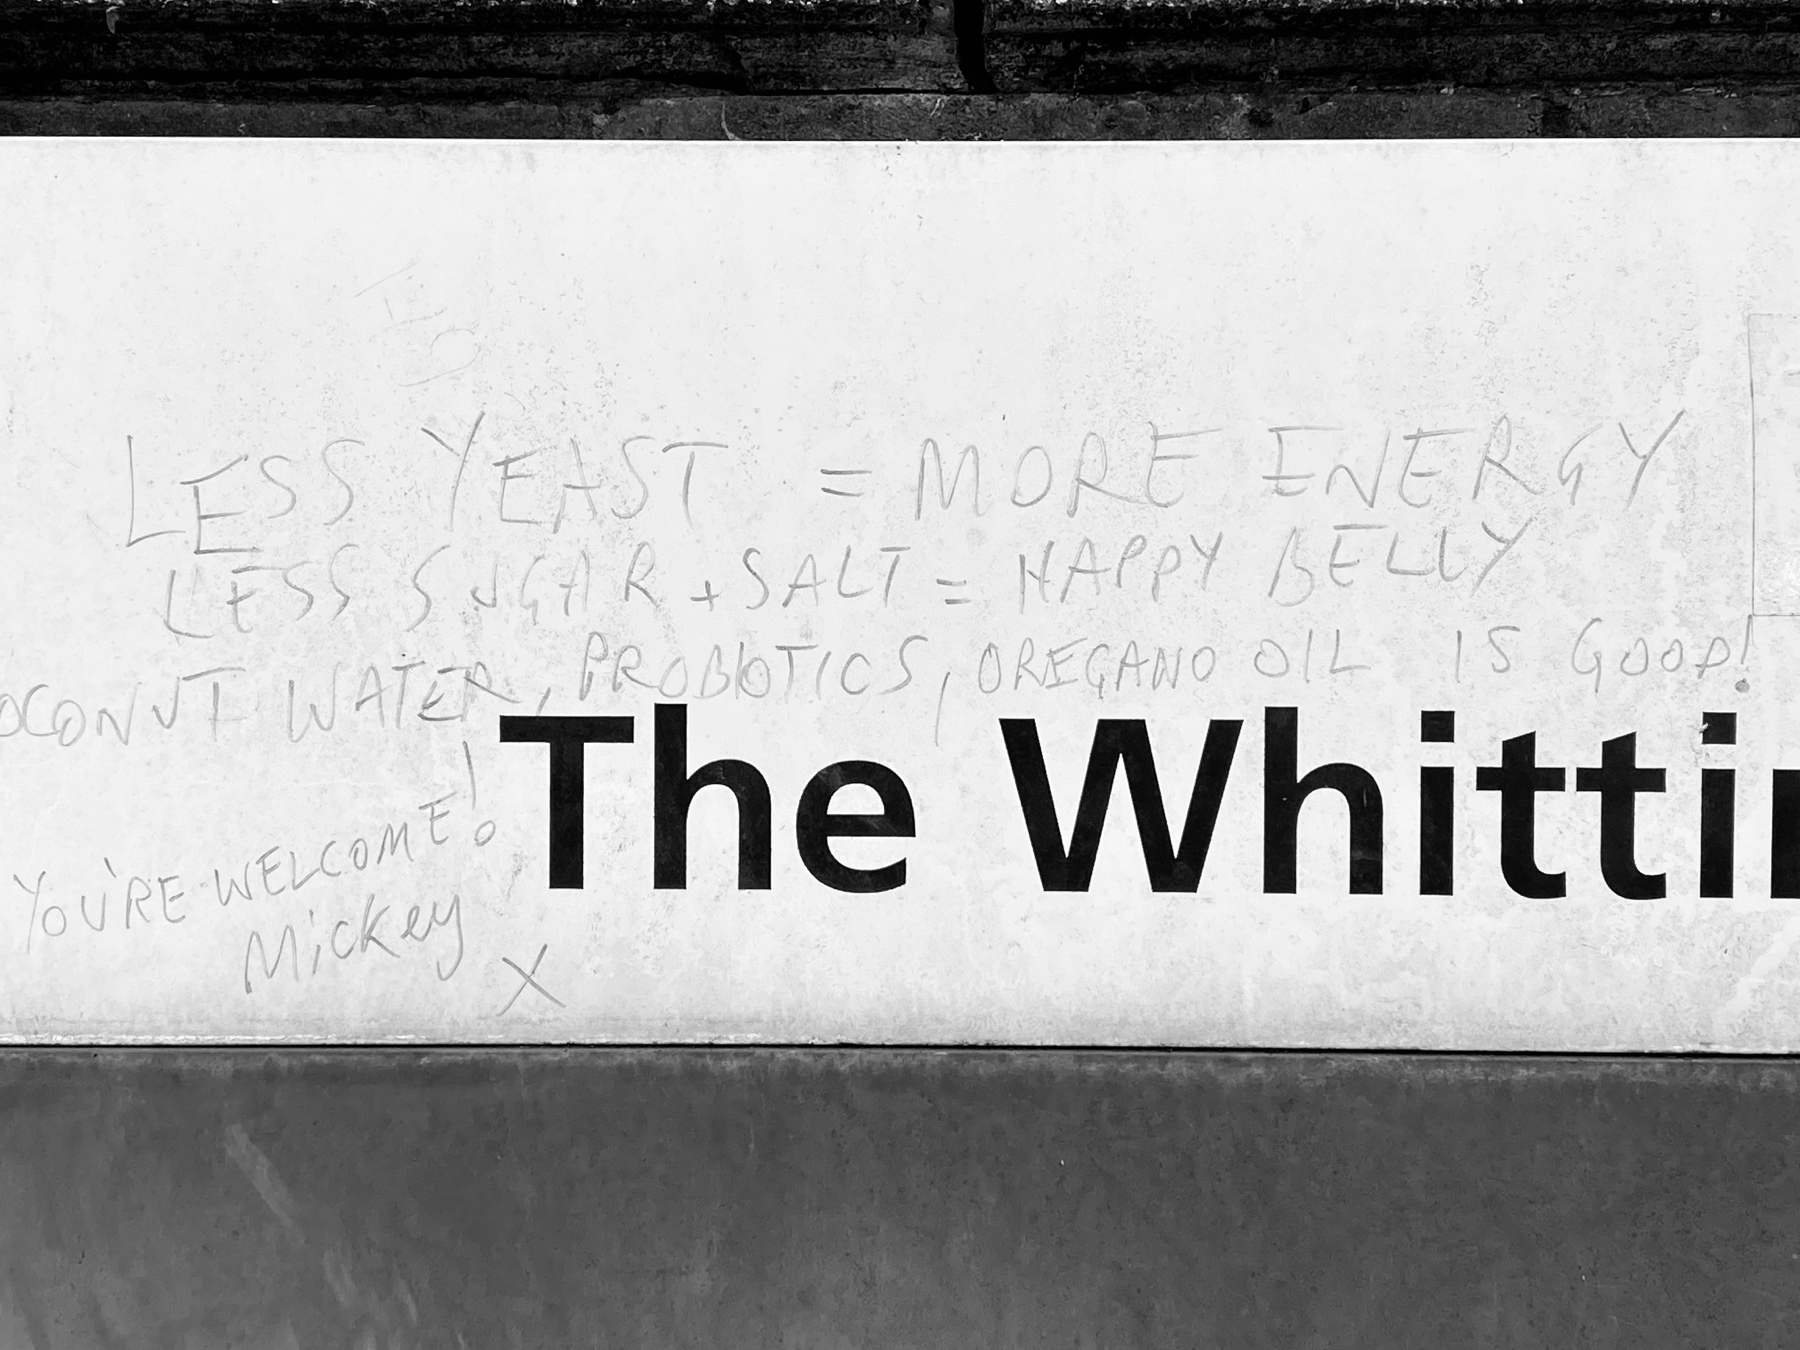 LESS YEAST = MORE ENERGY
LESS SUGAR + SALT = HAPPY BELLY
OCONUT WATER, PROBIOTICS, OREGANO OIL IS GOOD!
The Whittin
YOU'RE WELCOME!
Mickey X